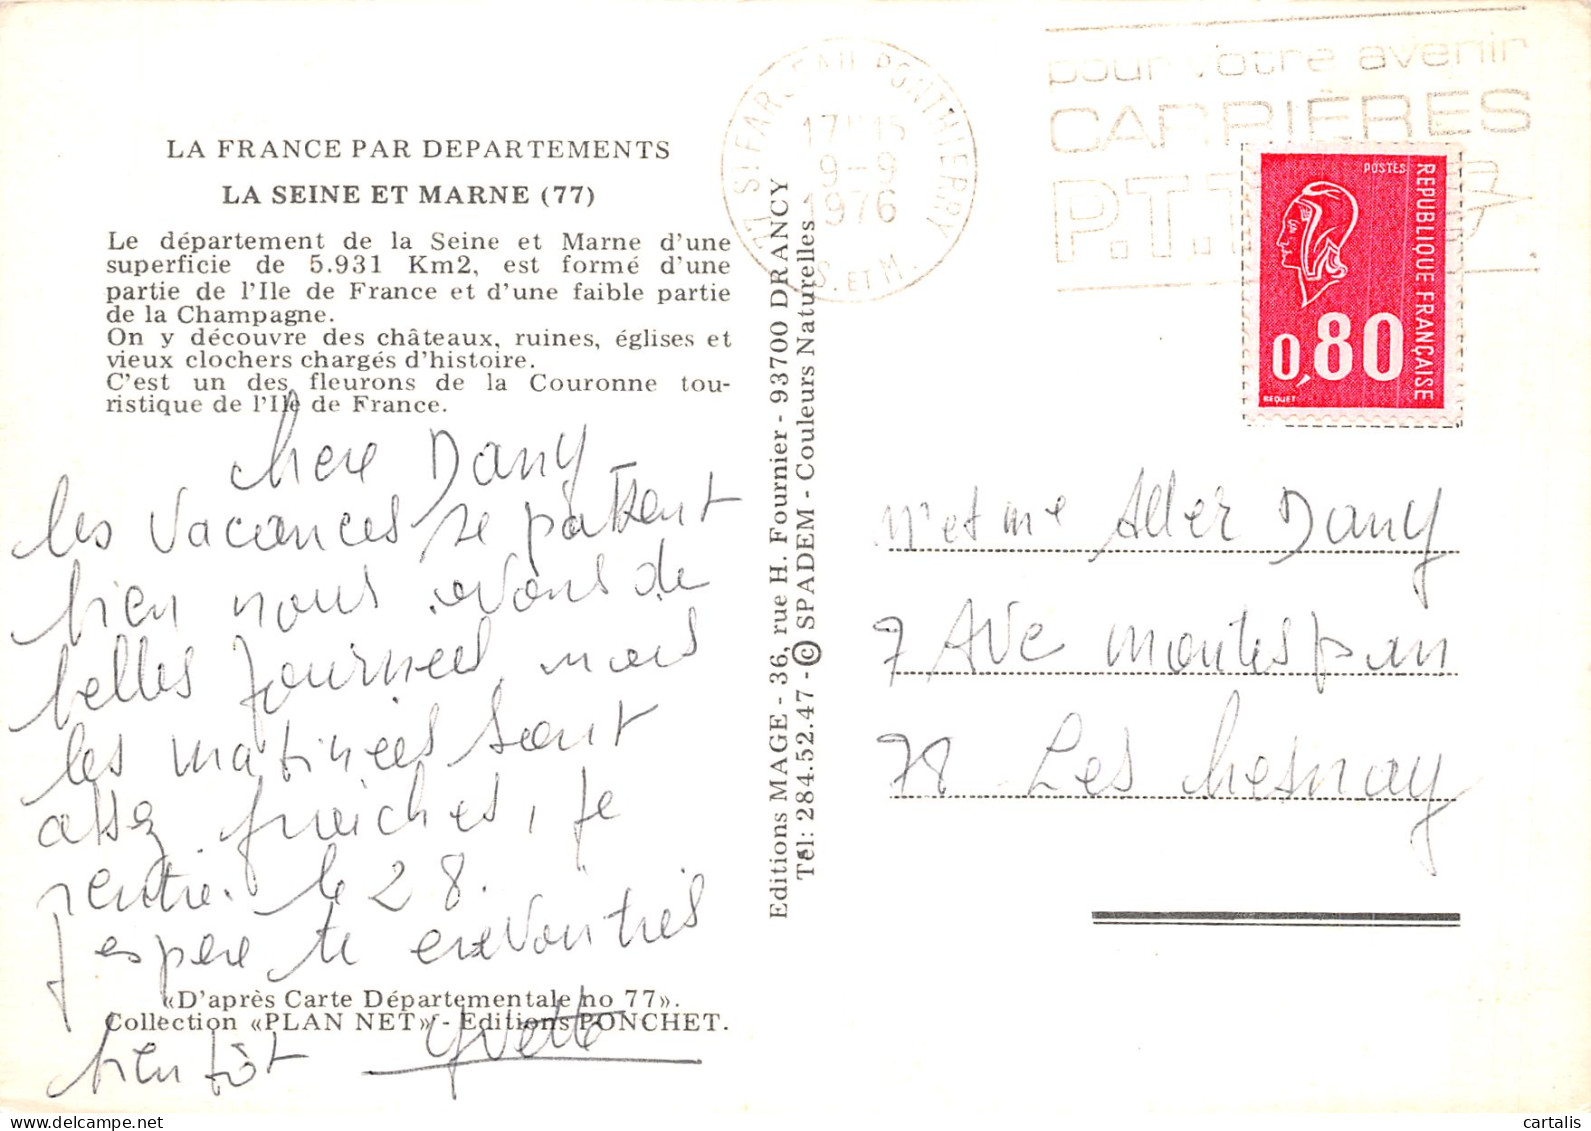 LA FRANCE PAR DEPARTEMENTS
LA SEINE ET MARNE (77)
Le département de la Seine et Marne d'une
superficie de 5.931 Km2, est formé d'une
partie de l'Ile de France et d'une faible partie
de la Champagne.
On y découvre des châteaux, ruines, églises et
vieux clochers chargés d'histoire.
C'est un des fleurons de la Couronne tou-
ristique de l'Ile de France.
Chere Dany
les vacances se passent
bien nous avons de
belles journees, mais
les matinees sont
assez fraiches, je
rentre le 28.
j espere te
bientôt Yvette
«D'après Carte Départementale no 77».
Collection «PLAN NET» - Editions PONCHET.
Editions MAGE - 36, rue H. Fournier - 93700 DRANCY
Tél: 284.52.47 - © SPADEM - Couleurs Naturelles
77 ST FARGEAU PONTHIERRY
17H15
9-9
1976
S. ET M.
pour votre avenir
CARRIÈRES
P.T.T.
POSTES
REPUBLIQUE FRANÇAISE
0,80
BEQUET
Mr et me Aller Dany
7 Ave Montespan
78 Les Chesnay
cartalis.com